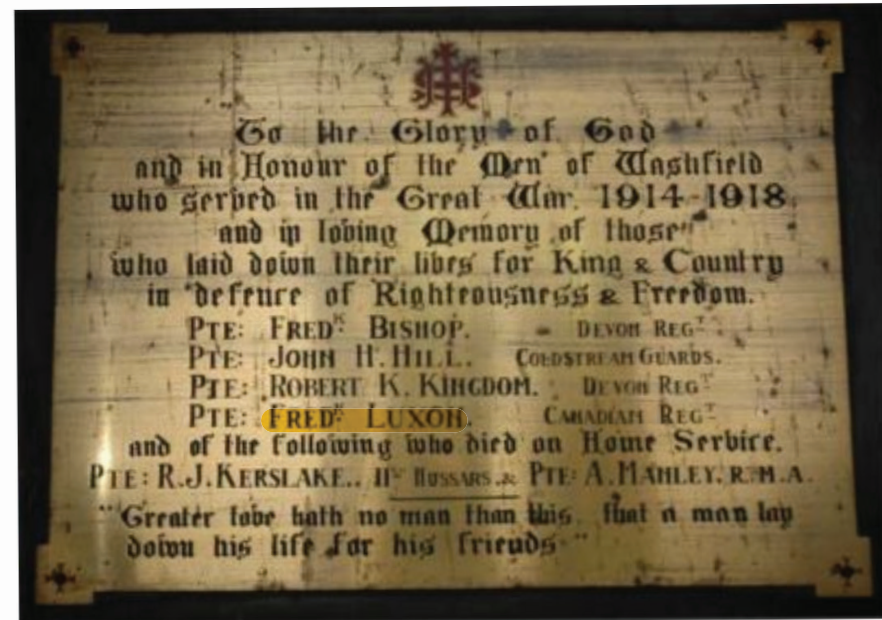 IHS
To the Glory of God
and in Honour of the Men of Washfield
who served in the Great War. 1914-1918,
and in loving Memory of those
who laid down their lives for King & Country
in defence of Righteousness & Freedom.
PTE: FREDK. BISHOP. - DEVON REGT.
PTE: JOHN H. HILL. COLDSTREAM GUARDS.
PTE: ROBERT K. KINGDOM. DEVON REGT
PTE: FREDK. LUXON. CANADIAN REGT.
and of the following who died on Home Service.
PTE: R.J. KERSLAKE.. HUSSARS. & PTE: A. MANLEY. R.M.A.
"Greater love hath no man than this, that a man lay
down his life for his friends."